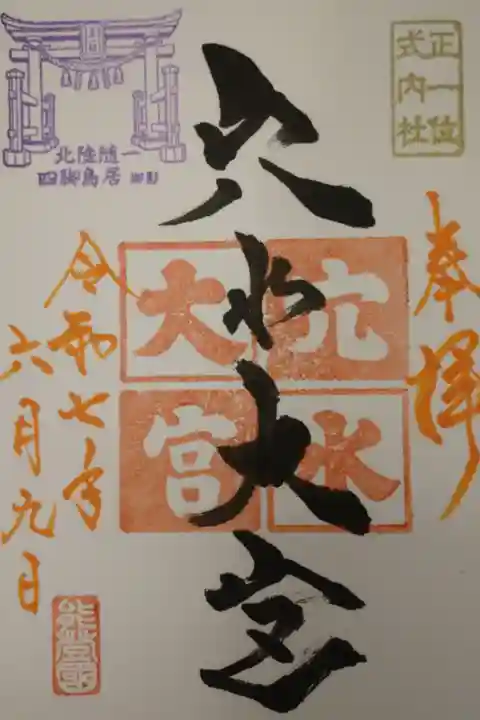 正一位
式内社
奉拝
穴水大宮
穴水
大宮
北陸随一
四脚鳥居
令和七年
六月九日
能登國